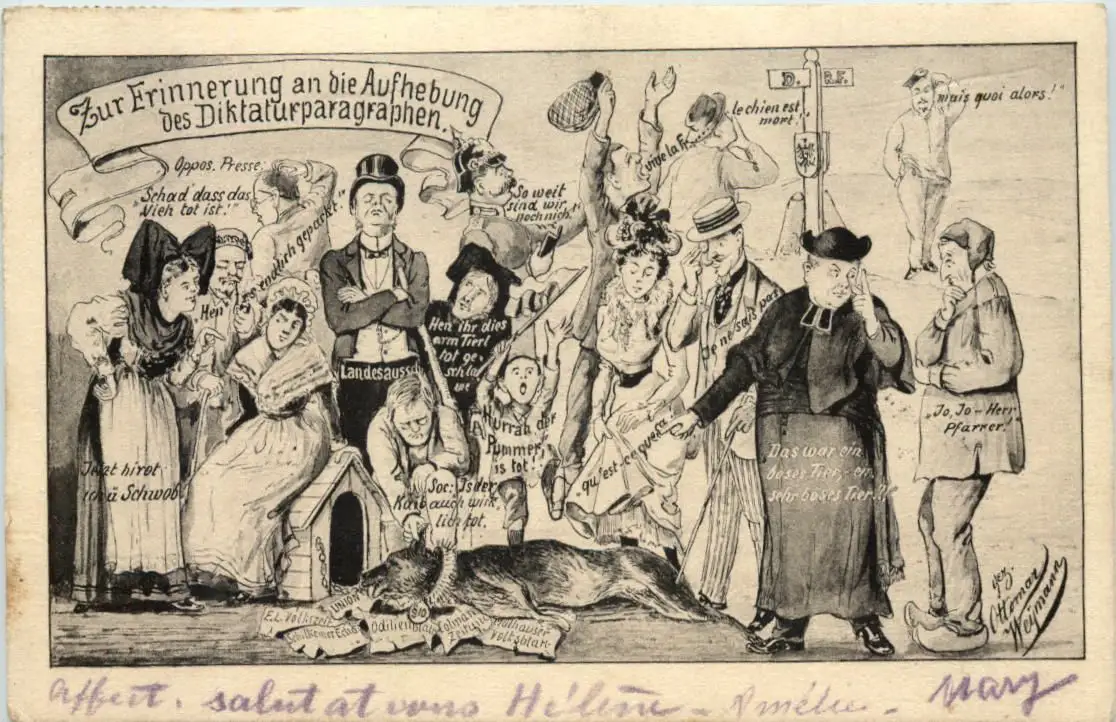 Zur Erinnerung an die Aufhebung
des Diktaturparagraphen.
Oppos. Presse:
"Schad dass das
Vieh tot ist!"
endlich gepackt."
Hen
So weit
sind wir
noch nich."
vive la Fr
le chien est
mort!"
D.
R.F.
mais quoi alors!"
Landesaussch
Hen ihr dies
arm Tierl
tot ge-
schla
we
Hurrah der
Pummer
is tot!"
Soc: Is der
Kaib auch wirk
lich tot.
"qu'est-ce que ça"
Je ne sais pas
Das war ein
böses Tier, ein
sehr böses Tier!!"
"Jo, Jo - Herr
Pfarrer!"
Jetzt hirot
ich ü Schwob!
§10
E.L. Volkszeit
Odilienblat
Colmar
Zeitung
Mülhauser
Volksblatt
gez.
Ottomar
Weymann
affect. salut at vous Hélène - Amélie - Mary